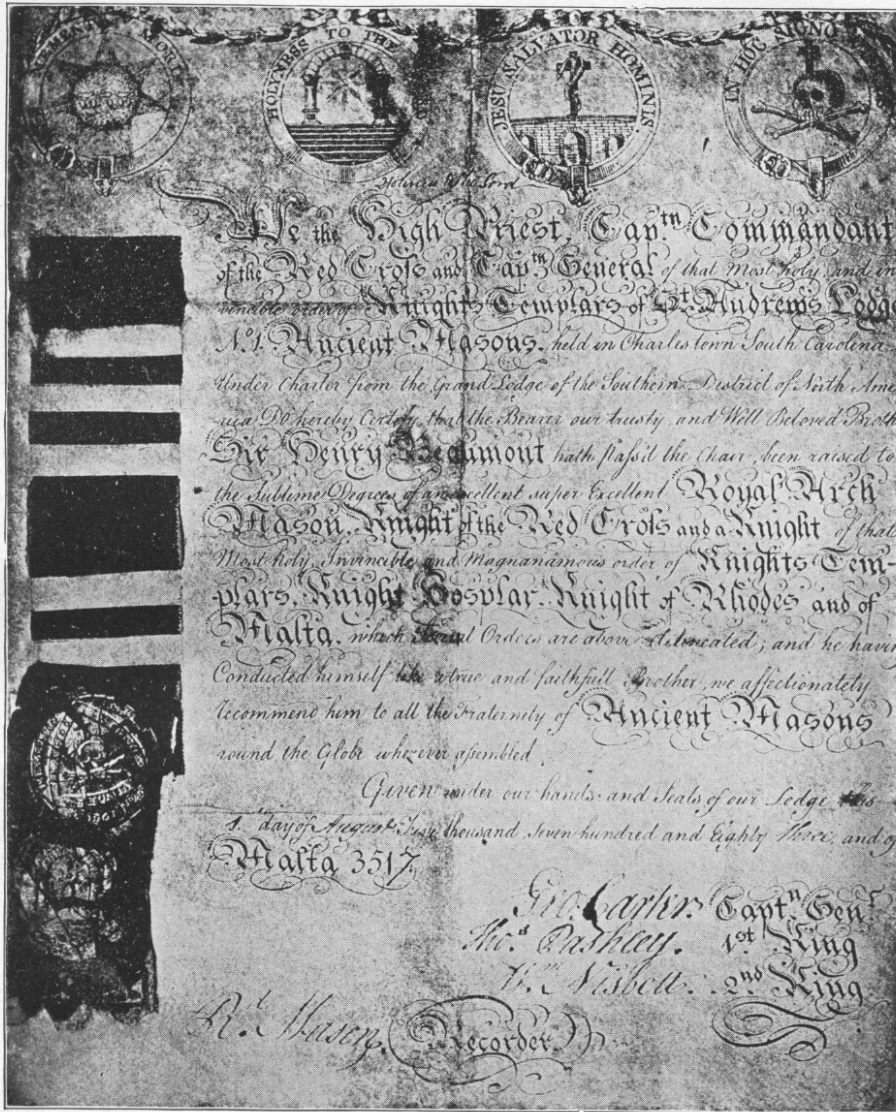 MEMENTO MORI
HOLYNESS TO THE
JESU SALVATOR HOMINIS.
IN HOC SIGNO
Holiness to the Lord
We the High Priest, Captn Commandant
of the Red Cross and Captn General of that Most holy and in
vincible order of Knights Templars of St. Andrew's Lodg
No. 1. Ancient Masons, held in Charlestown South Carolina
Under Charter from the Grand Lodge of the Southern District of North Ame
rica Do hereby Certify that the Bearer our trusty and Well Beloved Broth
Sir Henry Beaumont hath pass'd the Chair, been raised to
the Sublime Degrees of an excellent super Excellent Royal Arch
Mason, Knight of the Red Cross and a Knight of that
Most holy, Invincible, and Magnanamous order of Knights Tem-
plars, Knight Hosplar, Knight of Rhodes and of
Malta, which Several Orders are above delineated; and he havin
Conducted himself like a true and faithfull Brother, we affectionately
recommend him to all the Fraternity of Ancient Masons
round the Globe wherever assembled
Given under our hands and Seals of our Lodge this
1st day of August Five thousand Seven hundred and Eighty Three, and of
Malta 3517
Geo. Carter Captn. Genl
Thos Pashley. 1st King
Wm Nisbett. 2nd King
Rt. Mason, Recorder